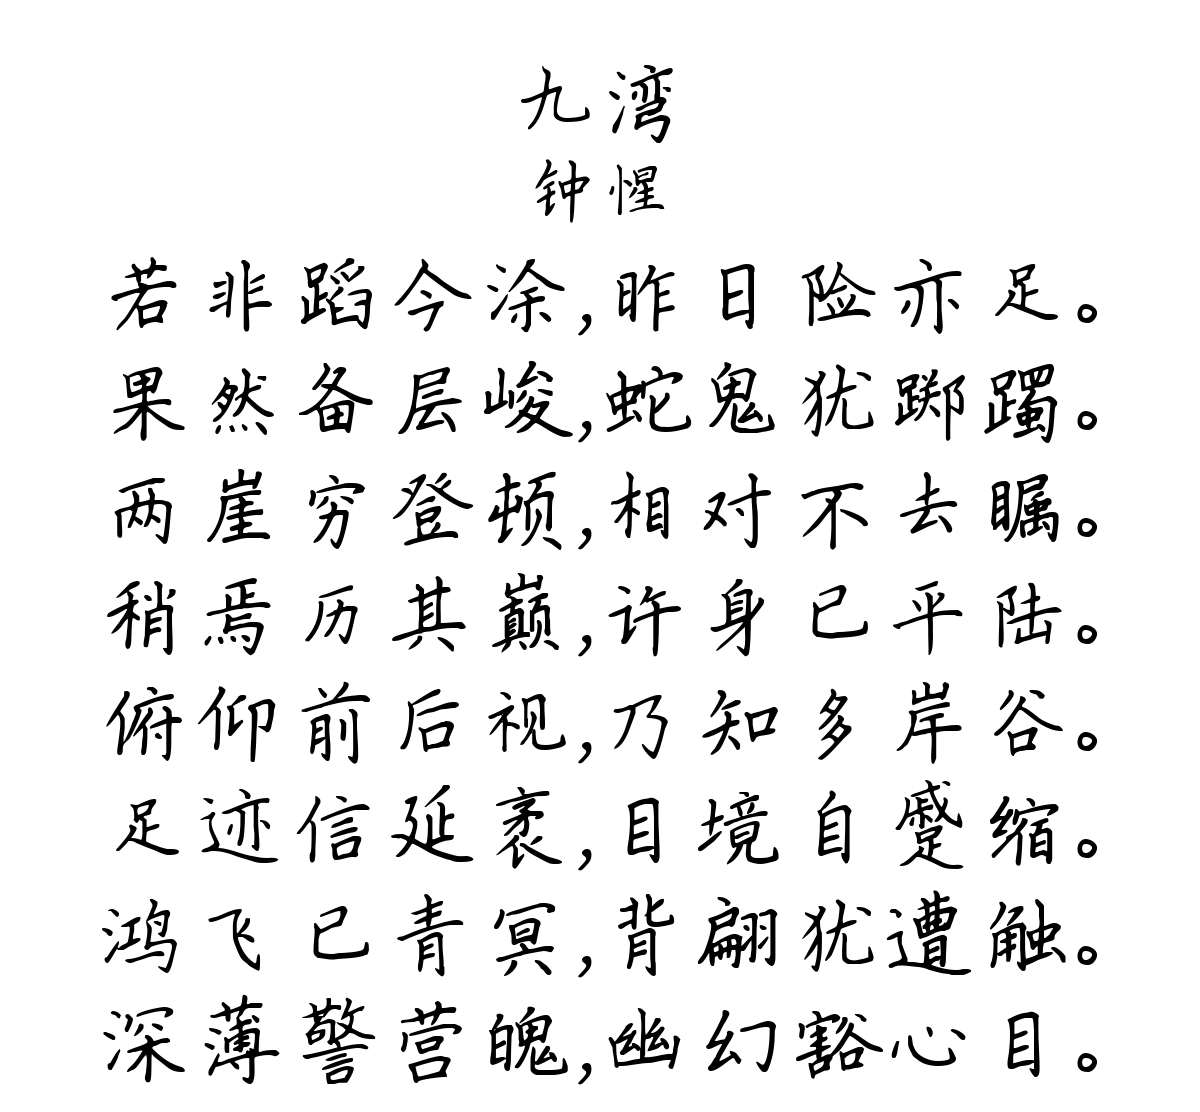 九湾
钟惺
若非蹈今涂,昨日险亦足。
果然备层峻,蛇鬼犹踯躅。
两崖穷登顿,相对不去瞩。
稍焉历其巅,许身已平陆。
俯仰前后视,乃知多岸谷。
足迹信延袤,目境自蹙缩。
鸿飞已青冥,背翩犹遭触。
深薄警营魄,幽幻豁心目。